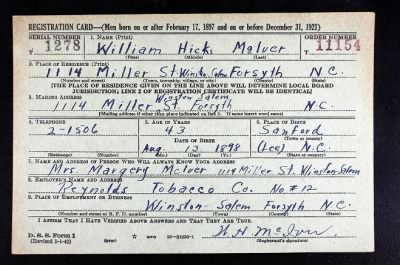 REGISTRATION CARD—(Men born on or after February 17, 1897 and on or before December 31, 1921)
SERIAL NUMBER 1. NAME (Print) ORDER NUMBER
1278 William Hicks McIver 11154
(First) (Middle) (Last)
2. PLACE OF RESIDENCE (Print)
1114 Miller St. Winston-Salem Forsyth N.C.
(Number and street) (Town, township, village, or city) (County) (State)
[THE PLACE OF RESIDENCE GIVEN ON THE LINE ABOVE WILL DETERMINE LOCAL BOARD
JURISDICTION; LINE 2 OF REGISTRATION CERTIFICATE WILL BE IDENTICAL]
3. MAILING ADDRESS
Winston Salem
1114 Miller St. Forsyth N.C.
[Mailing address if other than place indicated on line 2. If same insert word same]
4. TELEPHONE 5. AGE IN YEARS 6. PLACE OF BIRTH
2-1506 43 Sanford
DATE OF BIRTH (Town or county)
Aug. 13 1898 (Lee) N.C.
(Exchange) (Number) (Mo.) (Day) (Yr.) (State or country)
7. NAME AND ADDRESS OF PERSON WHO WILL ALWAYS KNOW YOUR ADDRESS
Mrs. Margery McIver 1114 Miller St. Winston-Salem
8. EMPLOYER'S NAME AND ADDRESS
Reynolds Tobacco Co. No # 12
9. PLACE OF EMPLOYMENT OR BUSINESS
Winston-Salem Forsyth N.C.
(Number and street or R. F. D. number) (Town) (County) (State)
I AFFIRM THAT I HAVE VERIFIED ABOVE ANSWERS AND THAT THEY ARE TRUE.
D. S. S. Form 1
(Revised 4-1-42) 16—21630-1 W H McIver
(Registrant's signature)